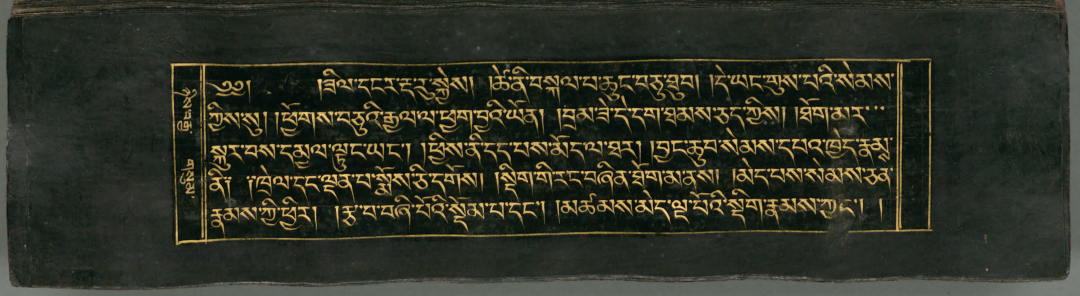 ༄༅། །ཟིལ་དངར་རྡ་རུ་སྐྱེས། །ཚེ་ནི་བསྐལ་པ་ཆུང་བཅུ་ཐུབ། །དེ་ཡང་གུས་པའི་སེམས་
ཀྱིས་སུ། །ཕྱོགས་བཅུའི་རྒྱལ་ལ་ཕྱག་བྱའི་ཡོན། །བྲམ་ཟེ་དེ་དག་ཐམས་ཅད་ཀྱིས། །ཐོག་མར་
སྐུར་བས་དམྱལ་ལྟུང་ཡང་། །ཕྱིས་ནི་དད་པས་མོད་ལ་ཐར། །བྱང་ཆུབ་སེམས་དཔའ་ཁྱེད་རྣམ
ནི། །ཁྲེལ་དང་ལྡན་པ་སྨོས་ཅི་དགོས། །སྡིག་གི་རང་བཞིན་ཐོག་མནས། །མེད་པས་སེམས་ཅན་
རྣམས་ཀྱི་ཕྱིར། །རྩ་བ་བཞི་པོའི་སྡོམ་པ་དང་། །མཚམས་མེད་ལྔ་པོའི་སྡིག་རྣམས་ཀྱང་། །